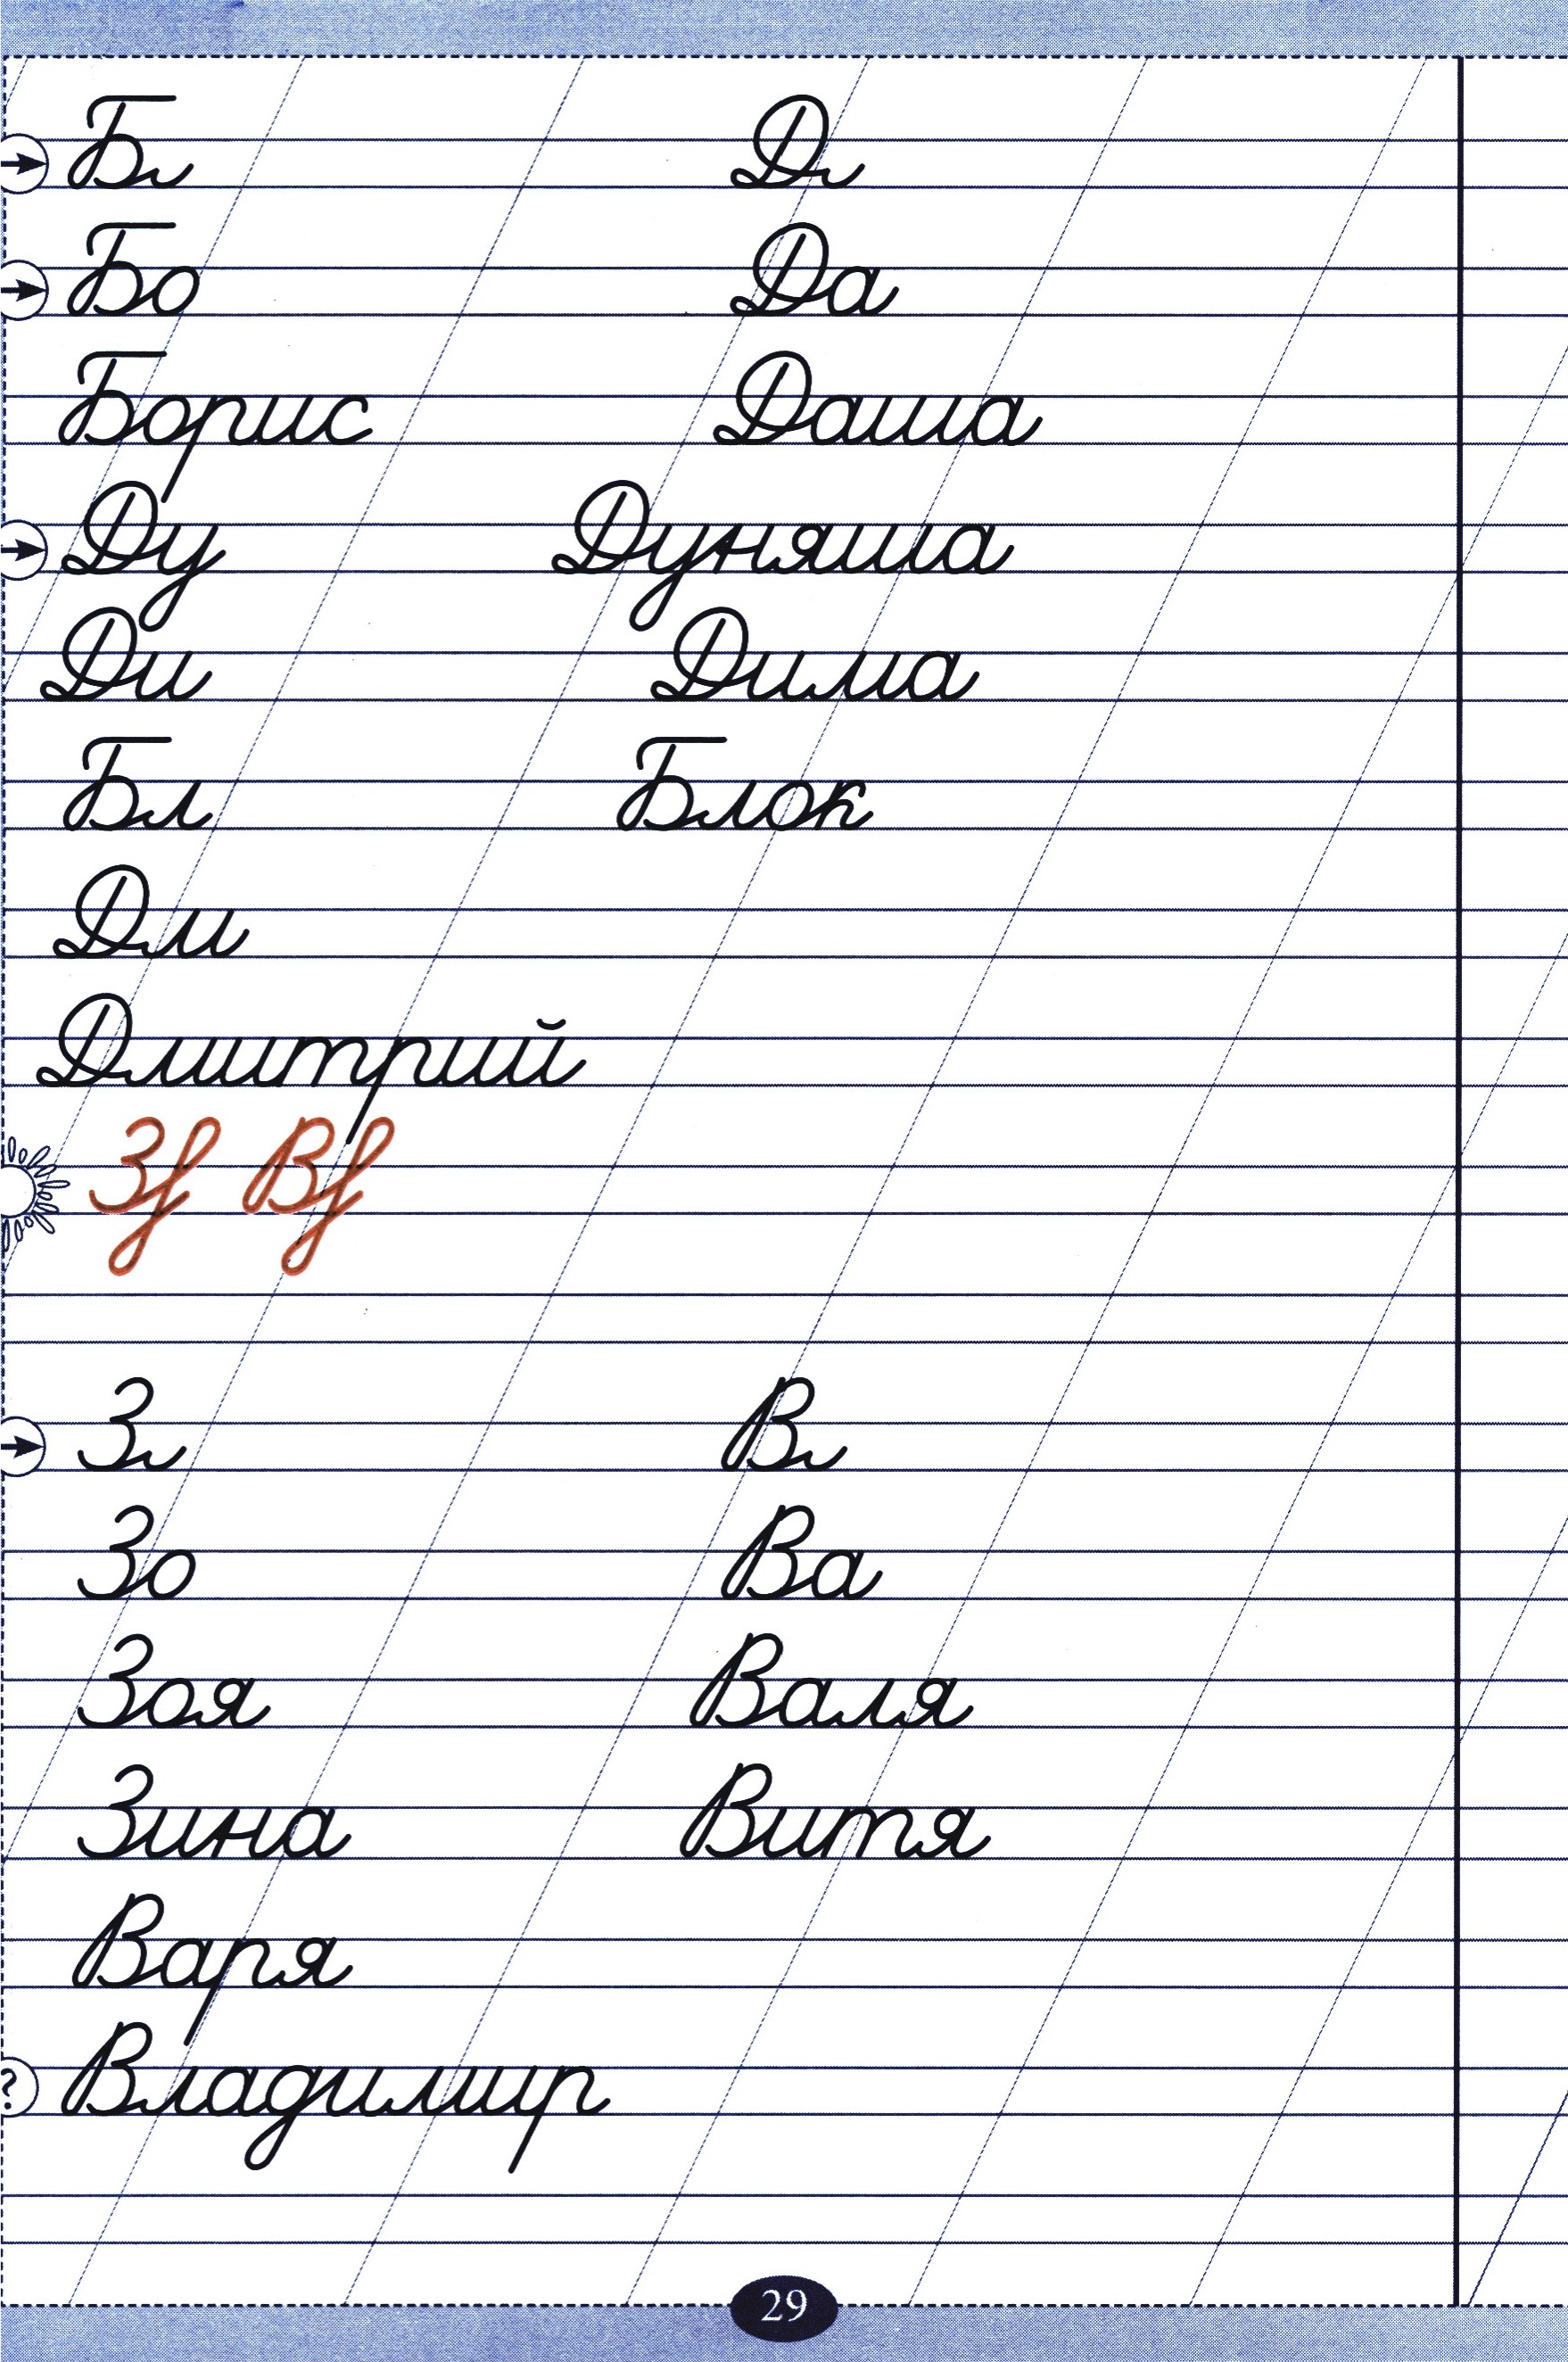 Б Д
Бо Да
Борис Даша
Ду Дуняша
Ди Дима
Бл Блок
Дм
Дмитрий
З В
З В
Зо Ва
Зоя Валя
Зина Витя
Варя
? Владимир
29